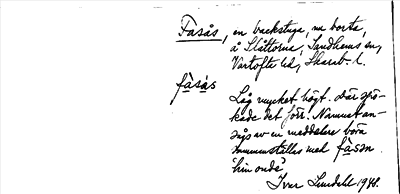 Fasås, en backstuga, nu borta,
å Slättorna, Sandhems sn,
Vartofta hd, Skarab. l.
fàsås
Låg mycket högt. Där spö-
kade det förr. Namnet an-
sågs av en meddelare böra
sammanställas med fasen
'hin onde'.
Ivar Lundahl 1948.